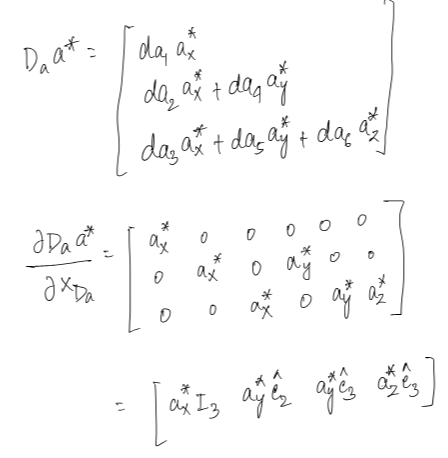 D_a a* = [ da₁ a*ₓ
da₂ a*ₓ + da₄ a*ᵧ
da₃ a*ₓ + da₅ a*ᵧ + da₆ a*_z ]
∂D_a a* / ∂x_{D_a} = [ a*ₓ 0 0 0 0 0
0 a*ₓ 0 a*ᵧ 0 0
0 0 a*ₓ 0 a*ᵧ a*_z ]
= [ a*ₓ I₃ a*ᵧ ê₂ a*ᵧ ê₃ a*_z ê₃ ]